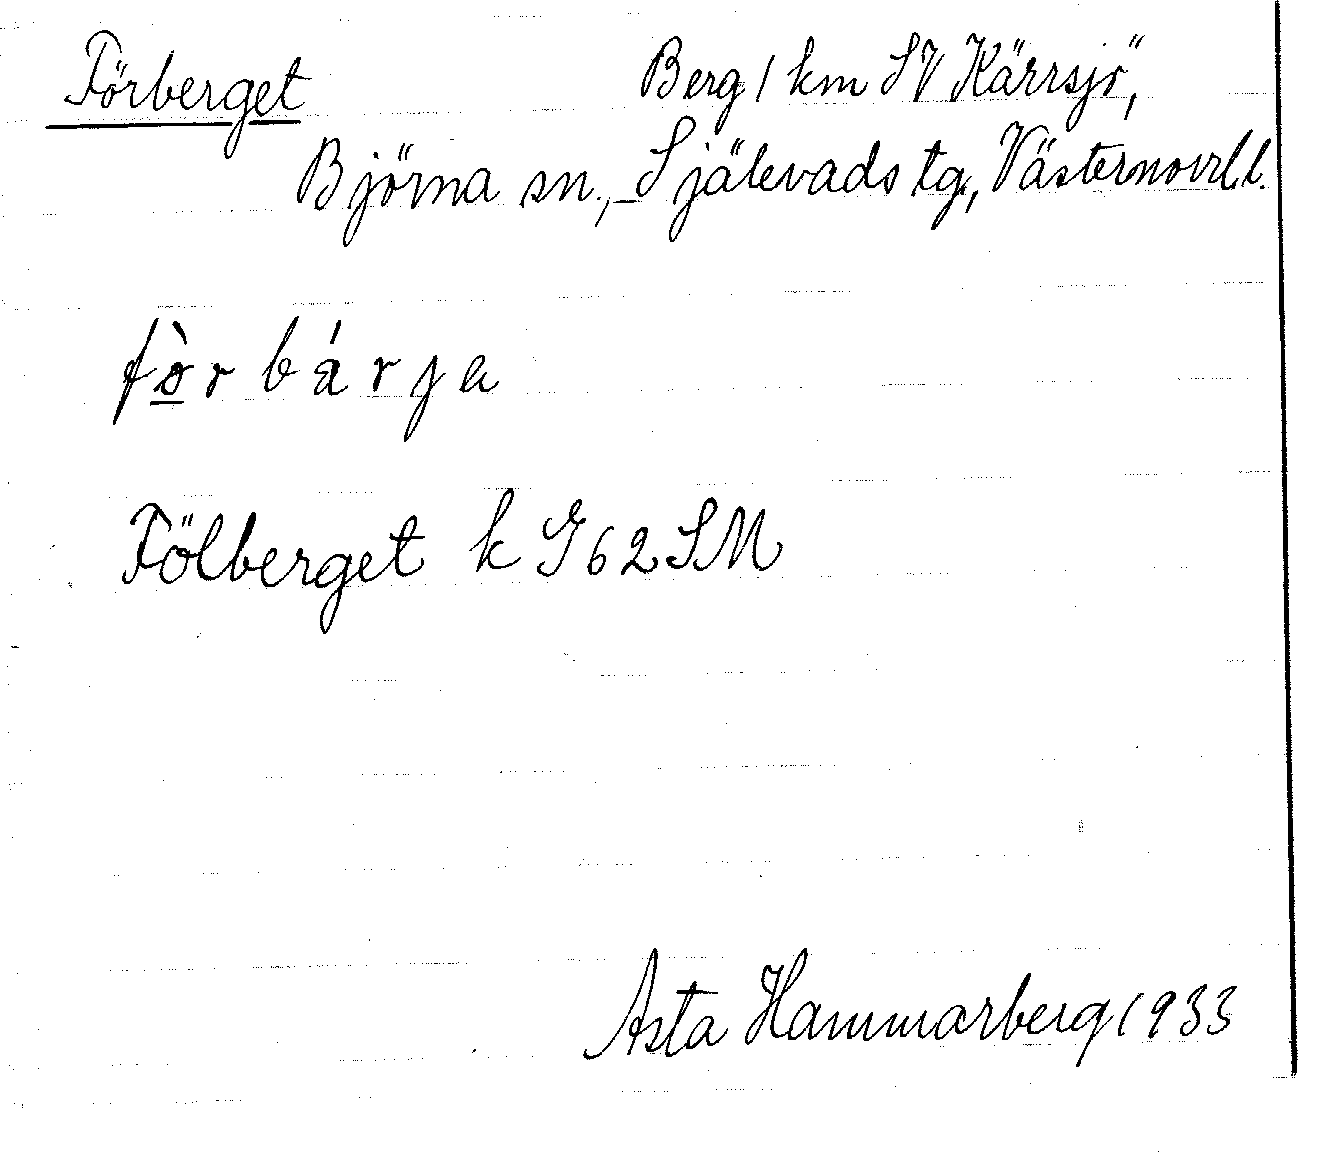 Förberget Berg 1 km SV Kärrsjö,
Björna sn., Själevads tg, Västernorrl l.
fò̲r bárja
Fölberget k G 62 SM
Asta Hammarberg 1933